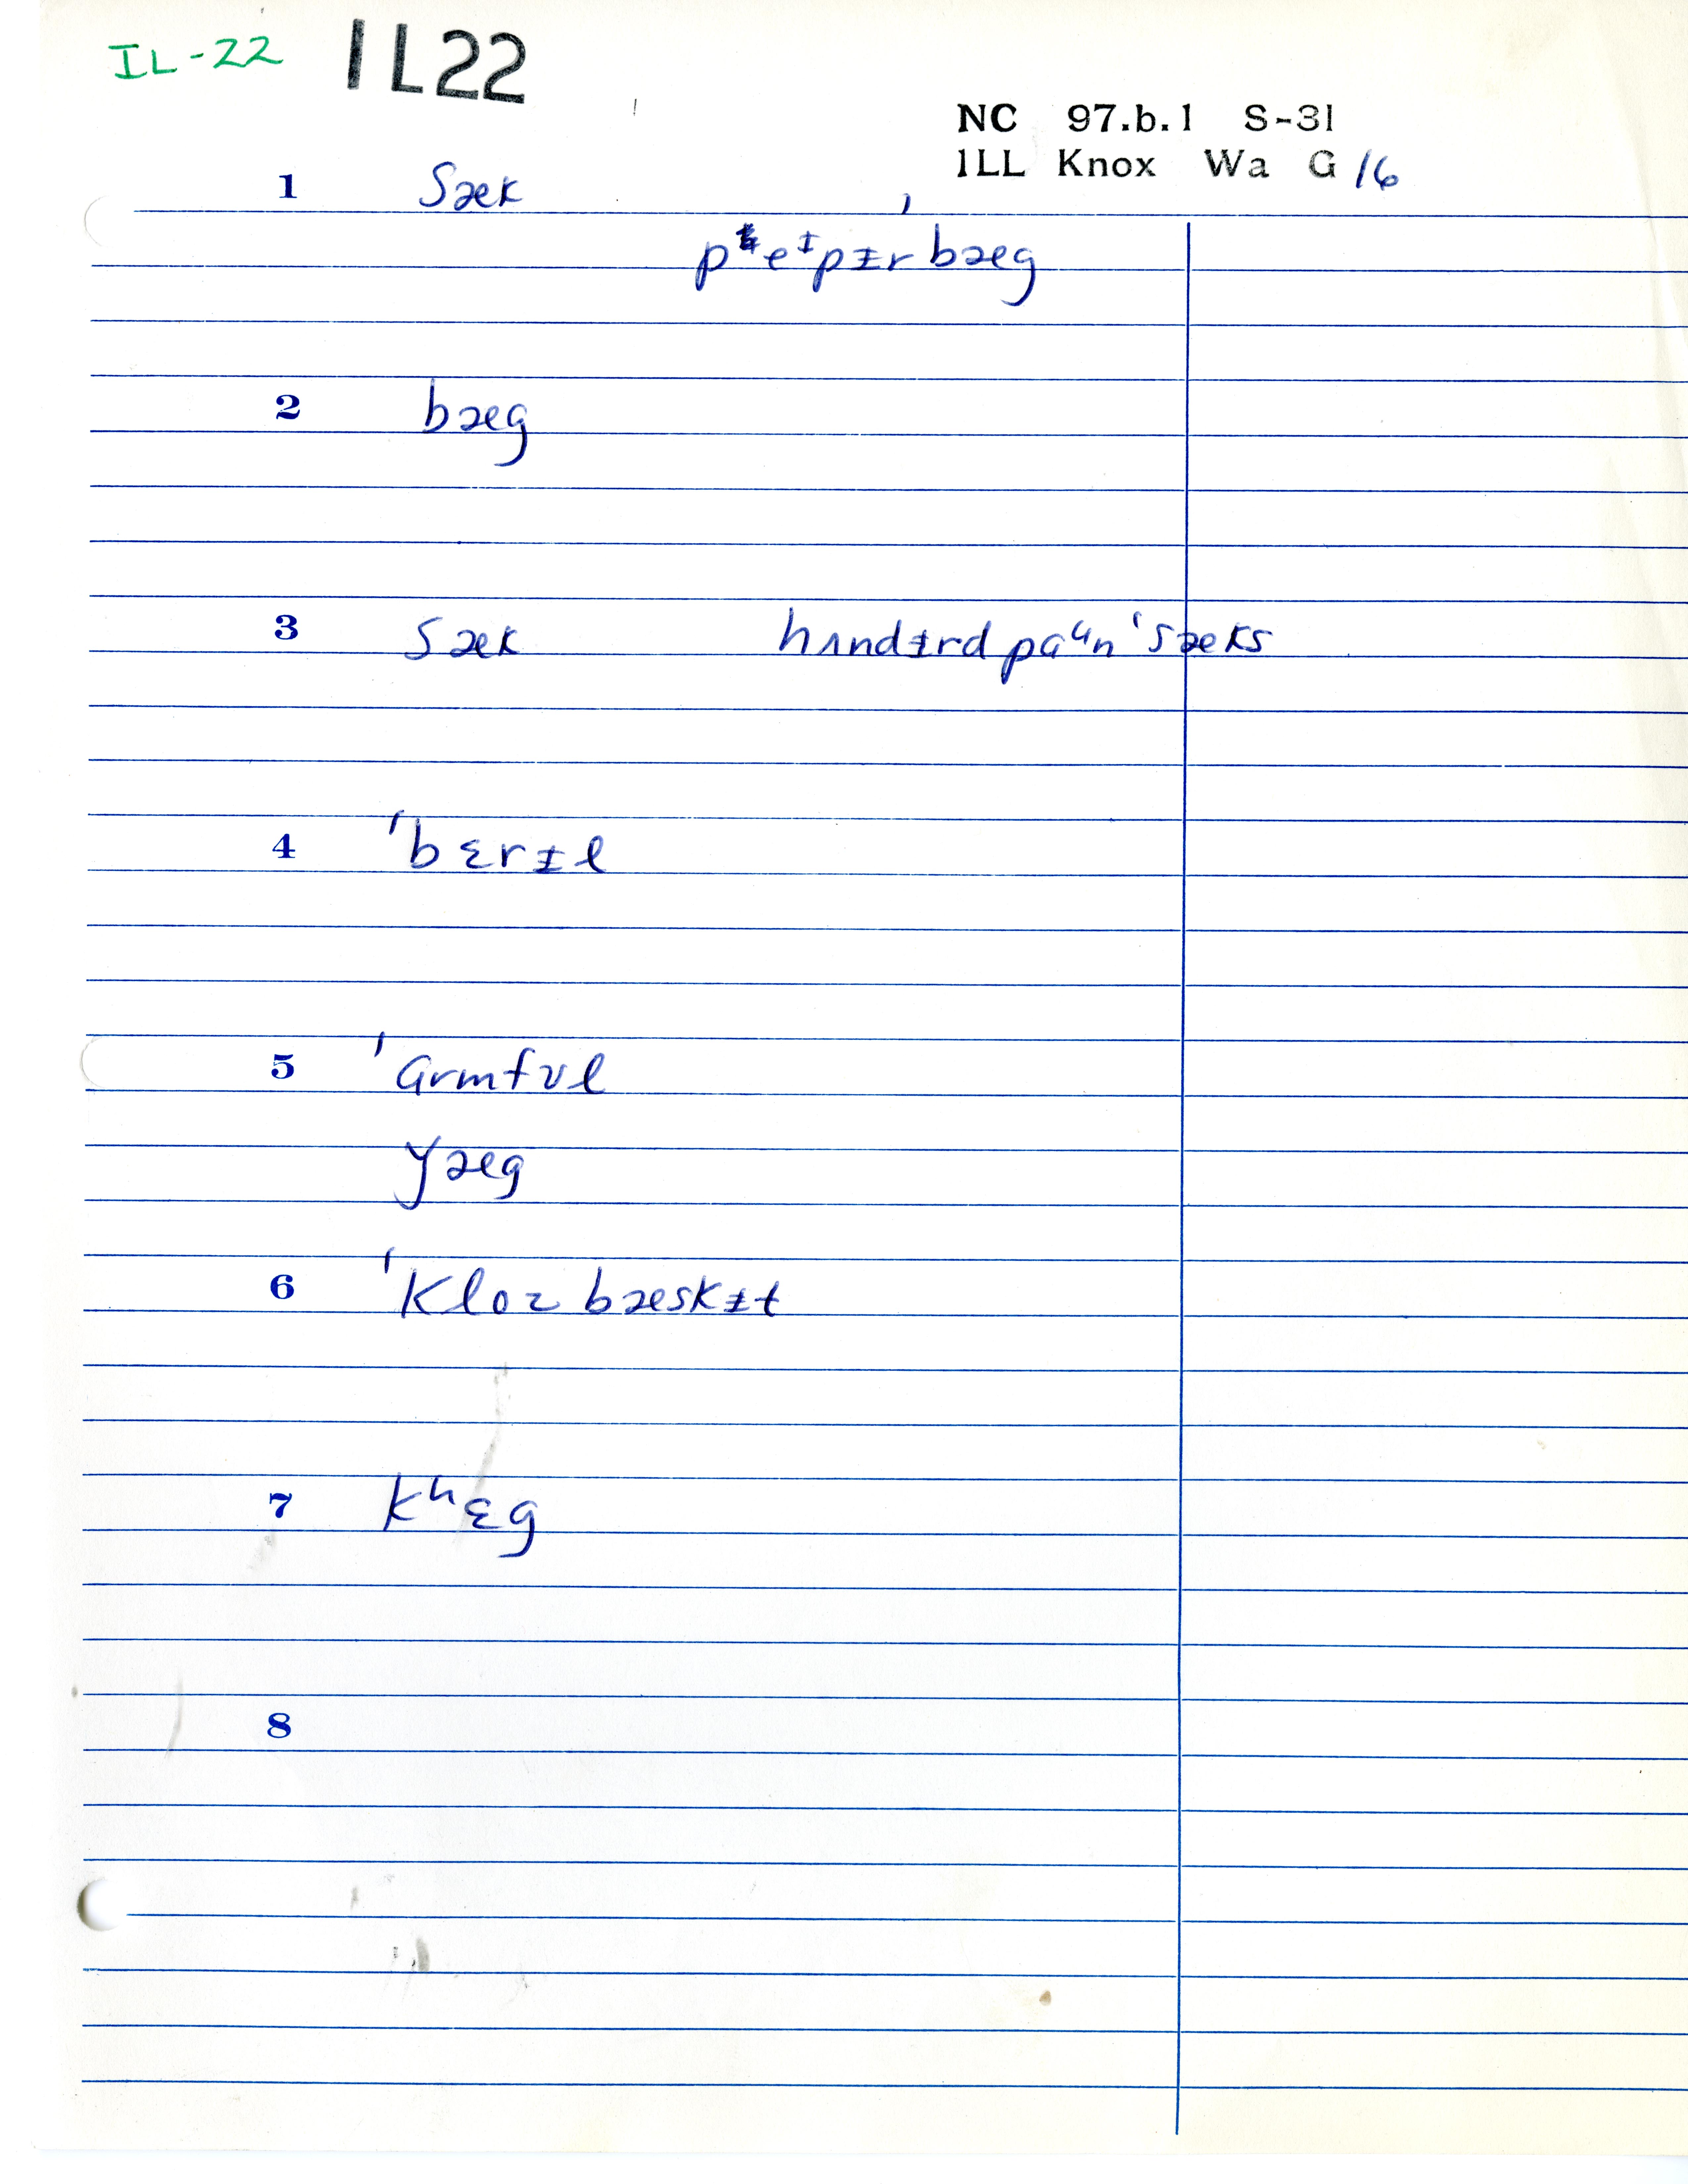 IL-22 IL22
NC 97.b.1 S-31
ILL Knox Wa G 16
1 sæk
peᶤpɨr bæg
2 bæg
3 sæk hʌndɨrd paᵘn ˈsæks
4 ˈbɛrɨl
5 ˈɑrmfʊl
yæg
6 ˈkloz bæskɨt
7 kʰɛg
8